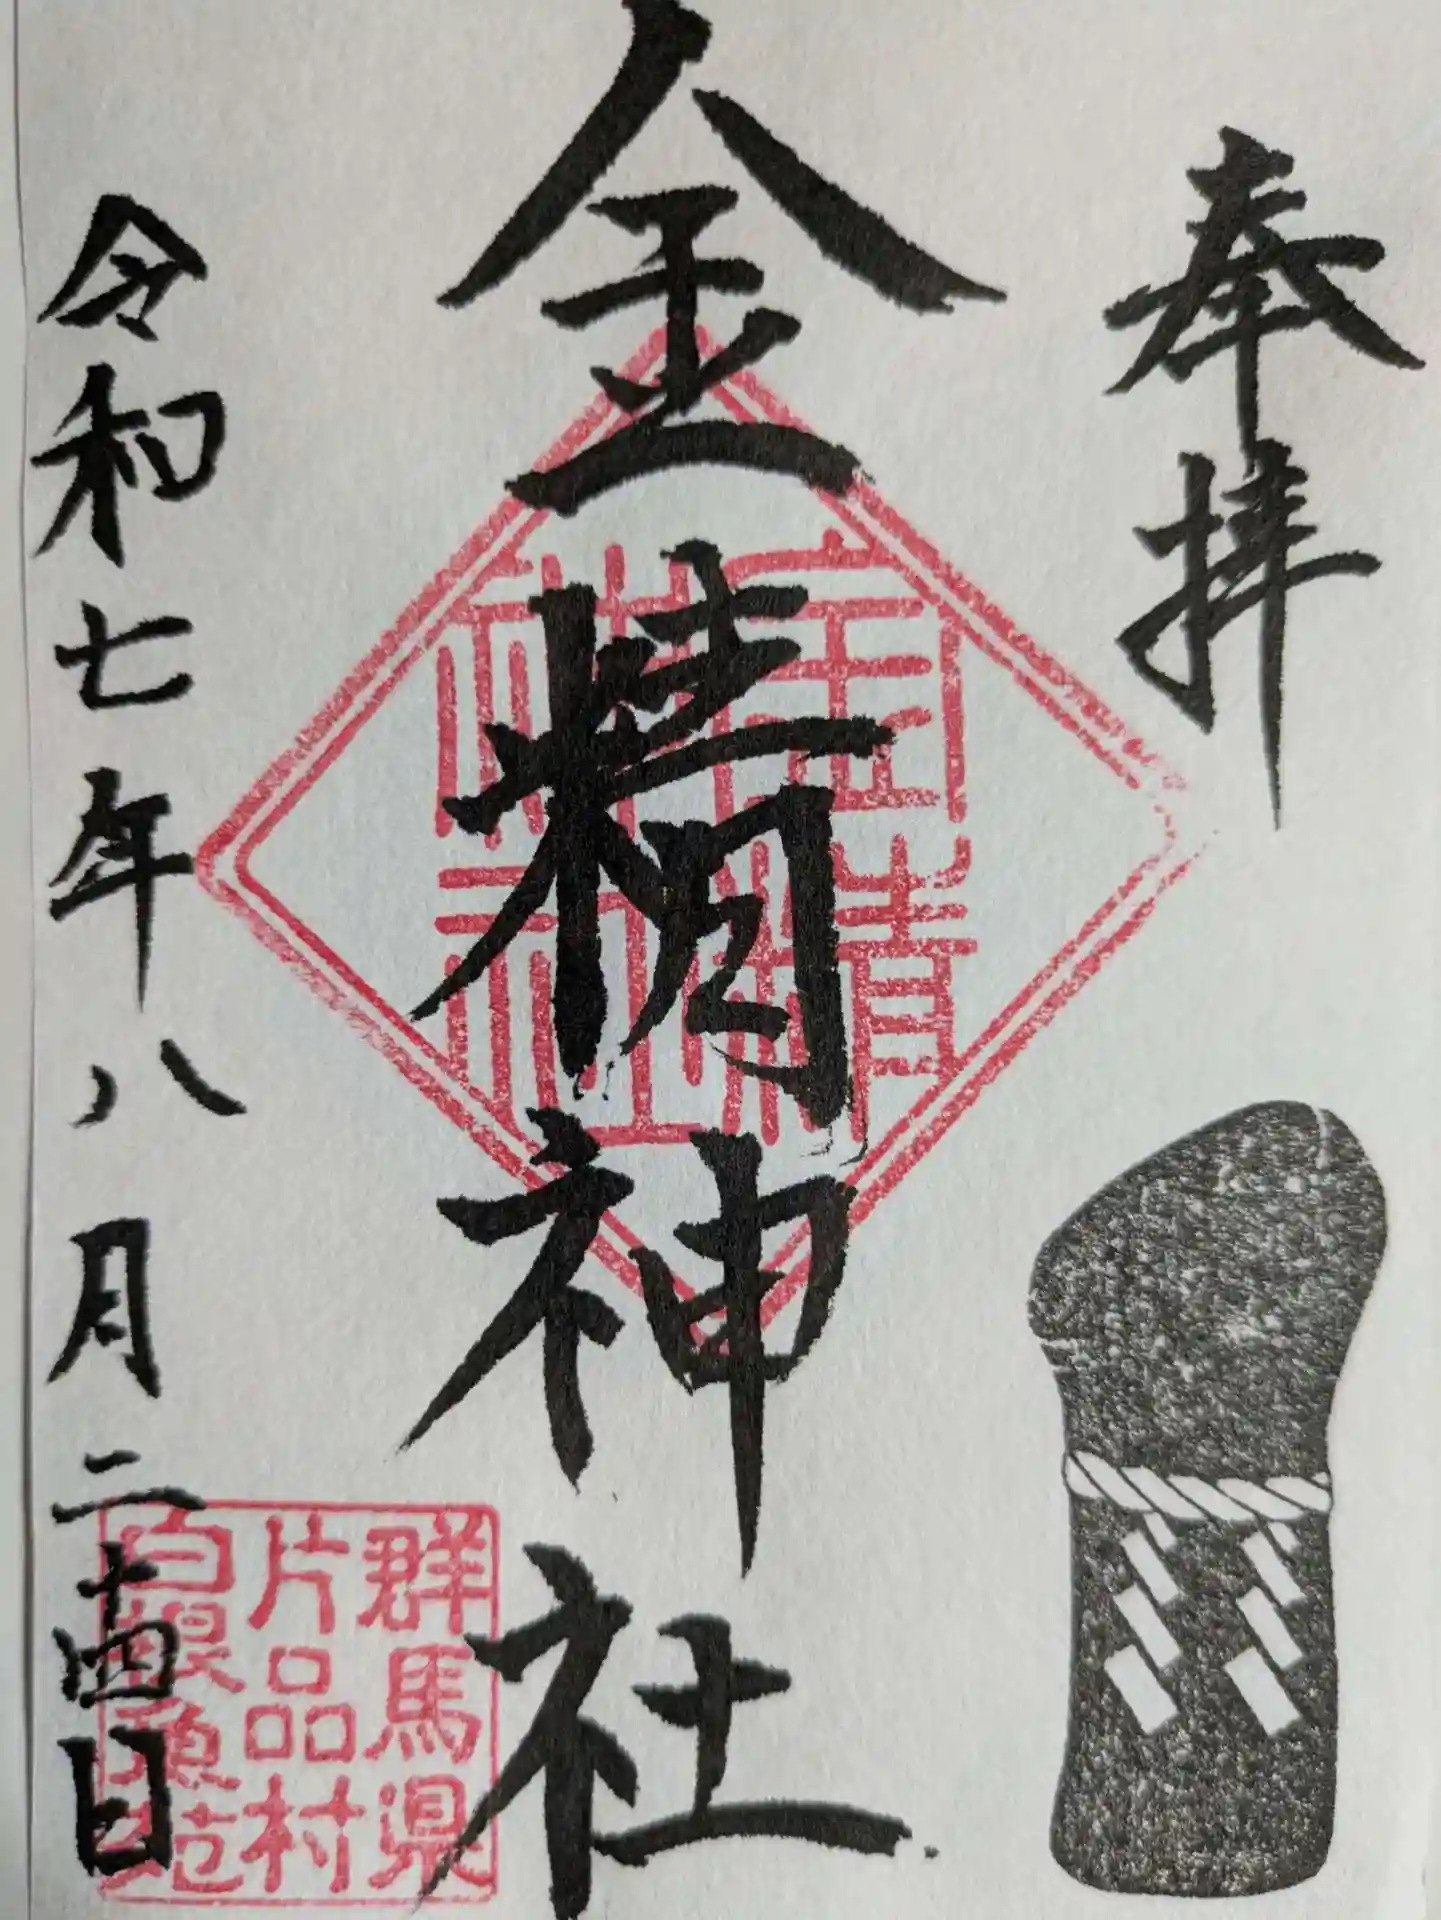 奉拝
金精神社
金精
神社
令和七年八月二十四日
群馬県
片品村
白根魚苑